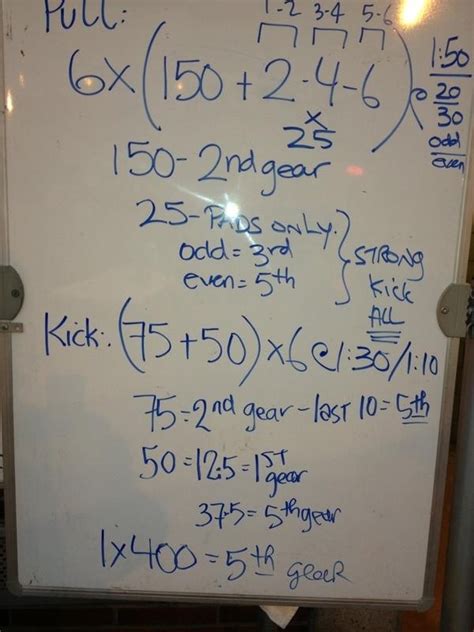 Pull:
1-2 3-4 5-6
6x(150+2-4-6) @ 1:50
x
25
20
30
odd
even
150-2nd gear
25-PADS ONLY
odd=3rd
even=5th
} STRONG
Kick
ALL
Kick: (75+50)x6@1:30/1:10
75=2nd gear-last 10=5th
50=12.5=1ST gear
37.5=5th gear
1x400=5th gear